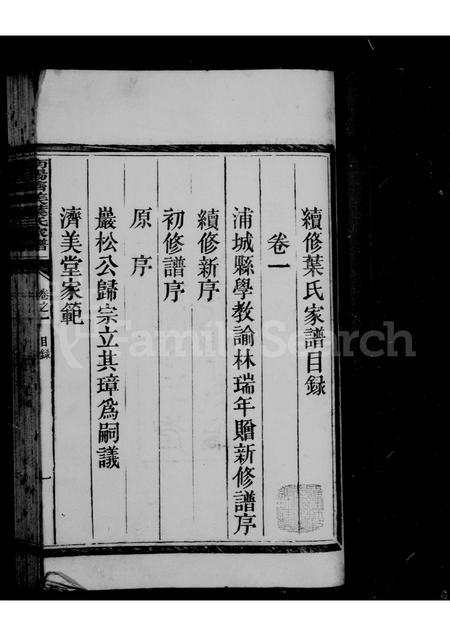 續修葉氏家譜目録
卷一
浦城縣學教諭林瑞年贈新修譜序
續修新序
初修譜序
原序
巖松公歸宗立其璋爲嗣議
濟美堂家範
卷之一
目録
一
FamilySearch